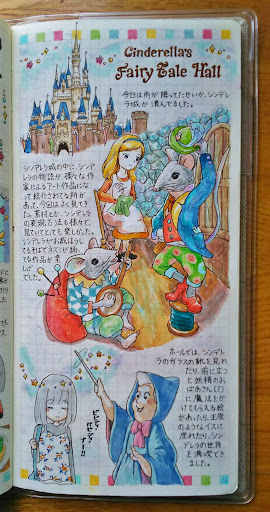 Cinderella's
Fairy Tale Hall
今日は雨が降ってたせいか、シンデレ
ラ城が混んでました。
シンデレラ城の中に、シンデ
レラの物語が、様々な作
家によるアート作品になっ
て紹介されてる所が
あって、今回はよく見てき
た。素材とか、シンデレラ
の表現方法も様々で、
見ていてとても楽しかった。
シンデレラがお裁ほうし
てるそばでネズミが踊っ
てる作品が楽
しげ
でした。
ホールでは、シンデレ
ラのガラスの靴を見れ
たり、前に立つ
と妖精のお
ばあさん(?)
に魔法をか
けてもらえる絵
があったり、王座
のようなイスに
座れたり、シン
デレラの世界
を満喫でき
ました。
ビビディ
バビディ
ブー!!